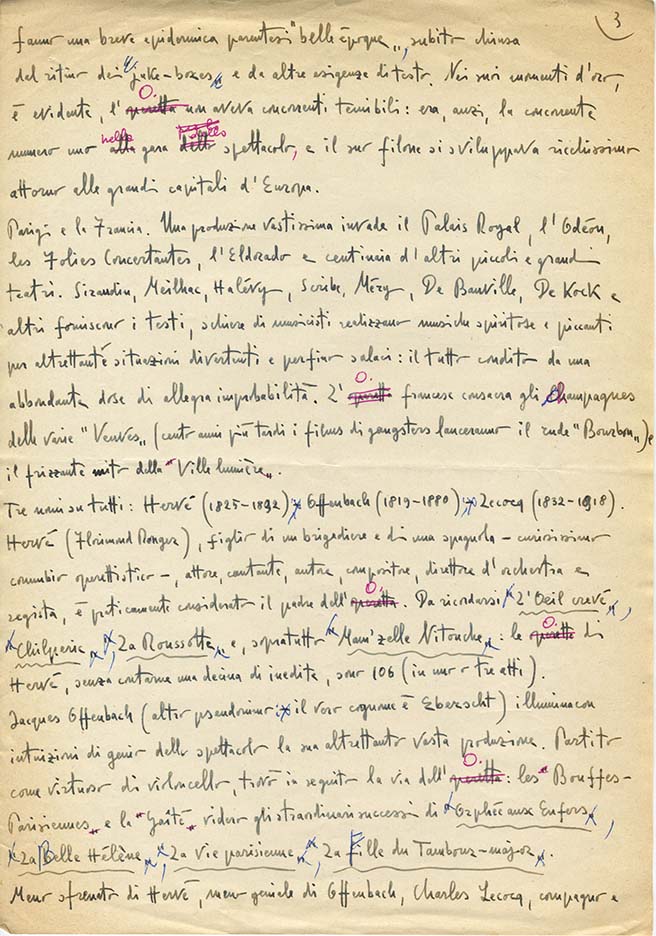 3
fanno una breve epidermica parentesi "belle époque", subito chiusa
dal ritmo dei juke-boxes e da altre esigenze di testo. Nei suoi momenti d'oro,
è evidente, l'O. non aveva concorrenti temibili: era, anzi, la concorrente
numero uno nella gara dello spettacolo, e il suo filone si sviluppava ricchissimo
attorno alle grandi capitali d'Europa.
Parigi e la Francia. Una produzione vastissima invade il Palais Royal, l'Odéon,
les Folies Concertantes, l'Eldorado e centinaia d'altri piccoli e grandi
teatri. Siraudin, Meilhac, Halévy, Scribe, Méry, De Banville, De Kock e
altri forniscono i testi, schiere di musicisti realizzano musiche spiritose e piccanti
per altrettante situazioni divertenti e perfino salaci: il tutto condito da una
abbondante dose di allegra improbabilità. L'O. francese consacra gli champagnes
delle varie "Veuves" (cento anni più tardi i films di gangsters lanceranno il rude "Bourbon") e
il frizzante mito della "Ville lumière".
Tre nomi su tutti: Hervé (1825-1892), Offenbach (1819-1880), Lecocq (1832-1918).
Hervé (Florimond Ronger), figlio di un brigadiere e di una spagnola - curiosissimo
connubio operettistico -, attore, cantante, autore, compositore, direttore d'orchestra e
regista, è praticamente considerato il padre dell'O. Da ricordarsi L'Oeil crevé,
Chilpéric, La Roussotte e, sopratutto Mam'zelle Nitouche: le O. di
Hervé, senza contarne una decina di inedite, sono 106 (in uno o tre atti).
Jacques Offenbach (altro pseudonimo: il vero cognome è Eberscht) illumina con
intuizioni di genio dello spettacolo la sua altrettanto vasta produzione. Partito
come virtuoso di violoncello, trovò in seguito la via dell'O.: les "Bouffes-
Parisiennes" e la "Gaîté" videro gli straordinari successi di Orphée aux Enfers,
La Belle Hélène, La Vie parisienne, La Fille du Tambour-major.
Meno sfrenato di Hervé, meno geniale di Offenbach, Charles Lecocq, compagno e